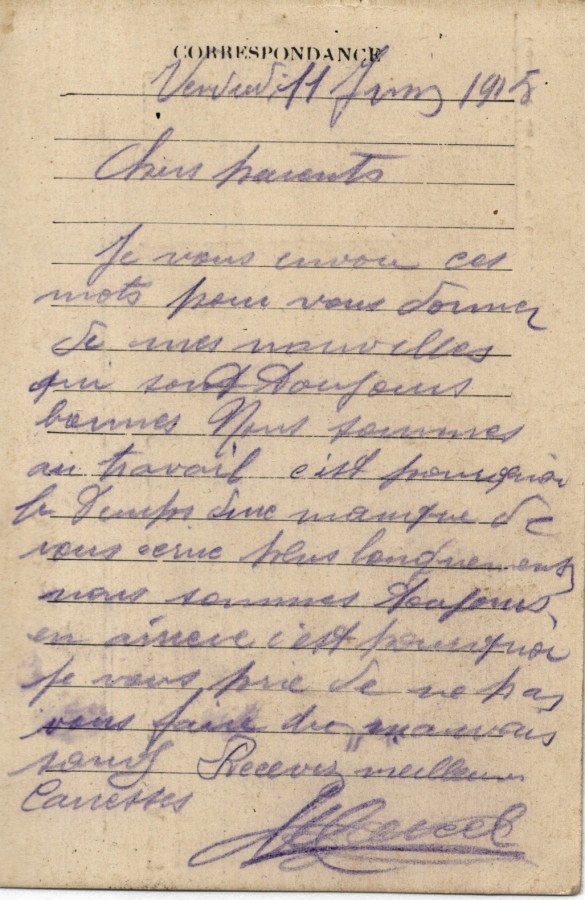 CORRESPONDANCE
Vendredi 11 Juin 1915
Chers parents
Je vous envoie ces
mots pour vous donner
de mes nouvelles
qui sont toujours
bonnes Nous sommes
au travail c'est pourquoi
le temps me manque de
vous ecrire plus longuement
nous sommes toujours
en arriere c'est pourquoi
je vous prie de ne pas
vous faire du mauvais
sang Recevez meilleures
Caresses
Marcel